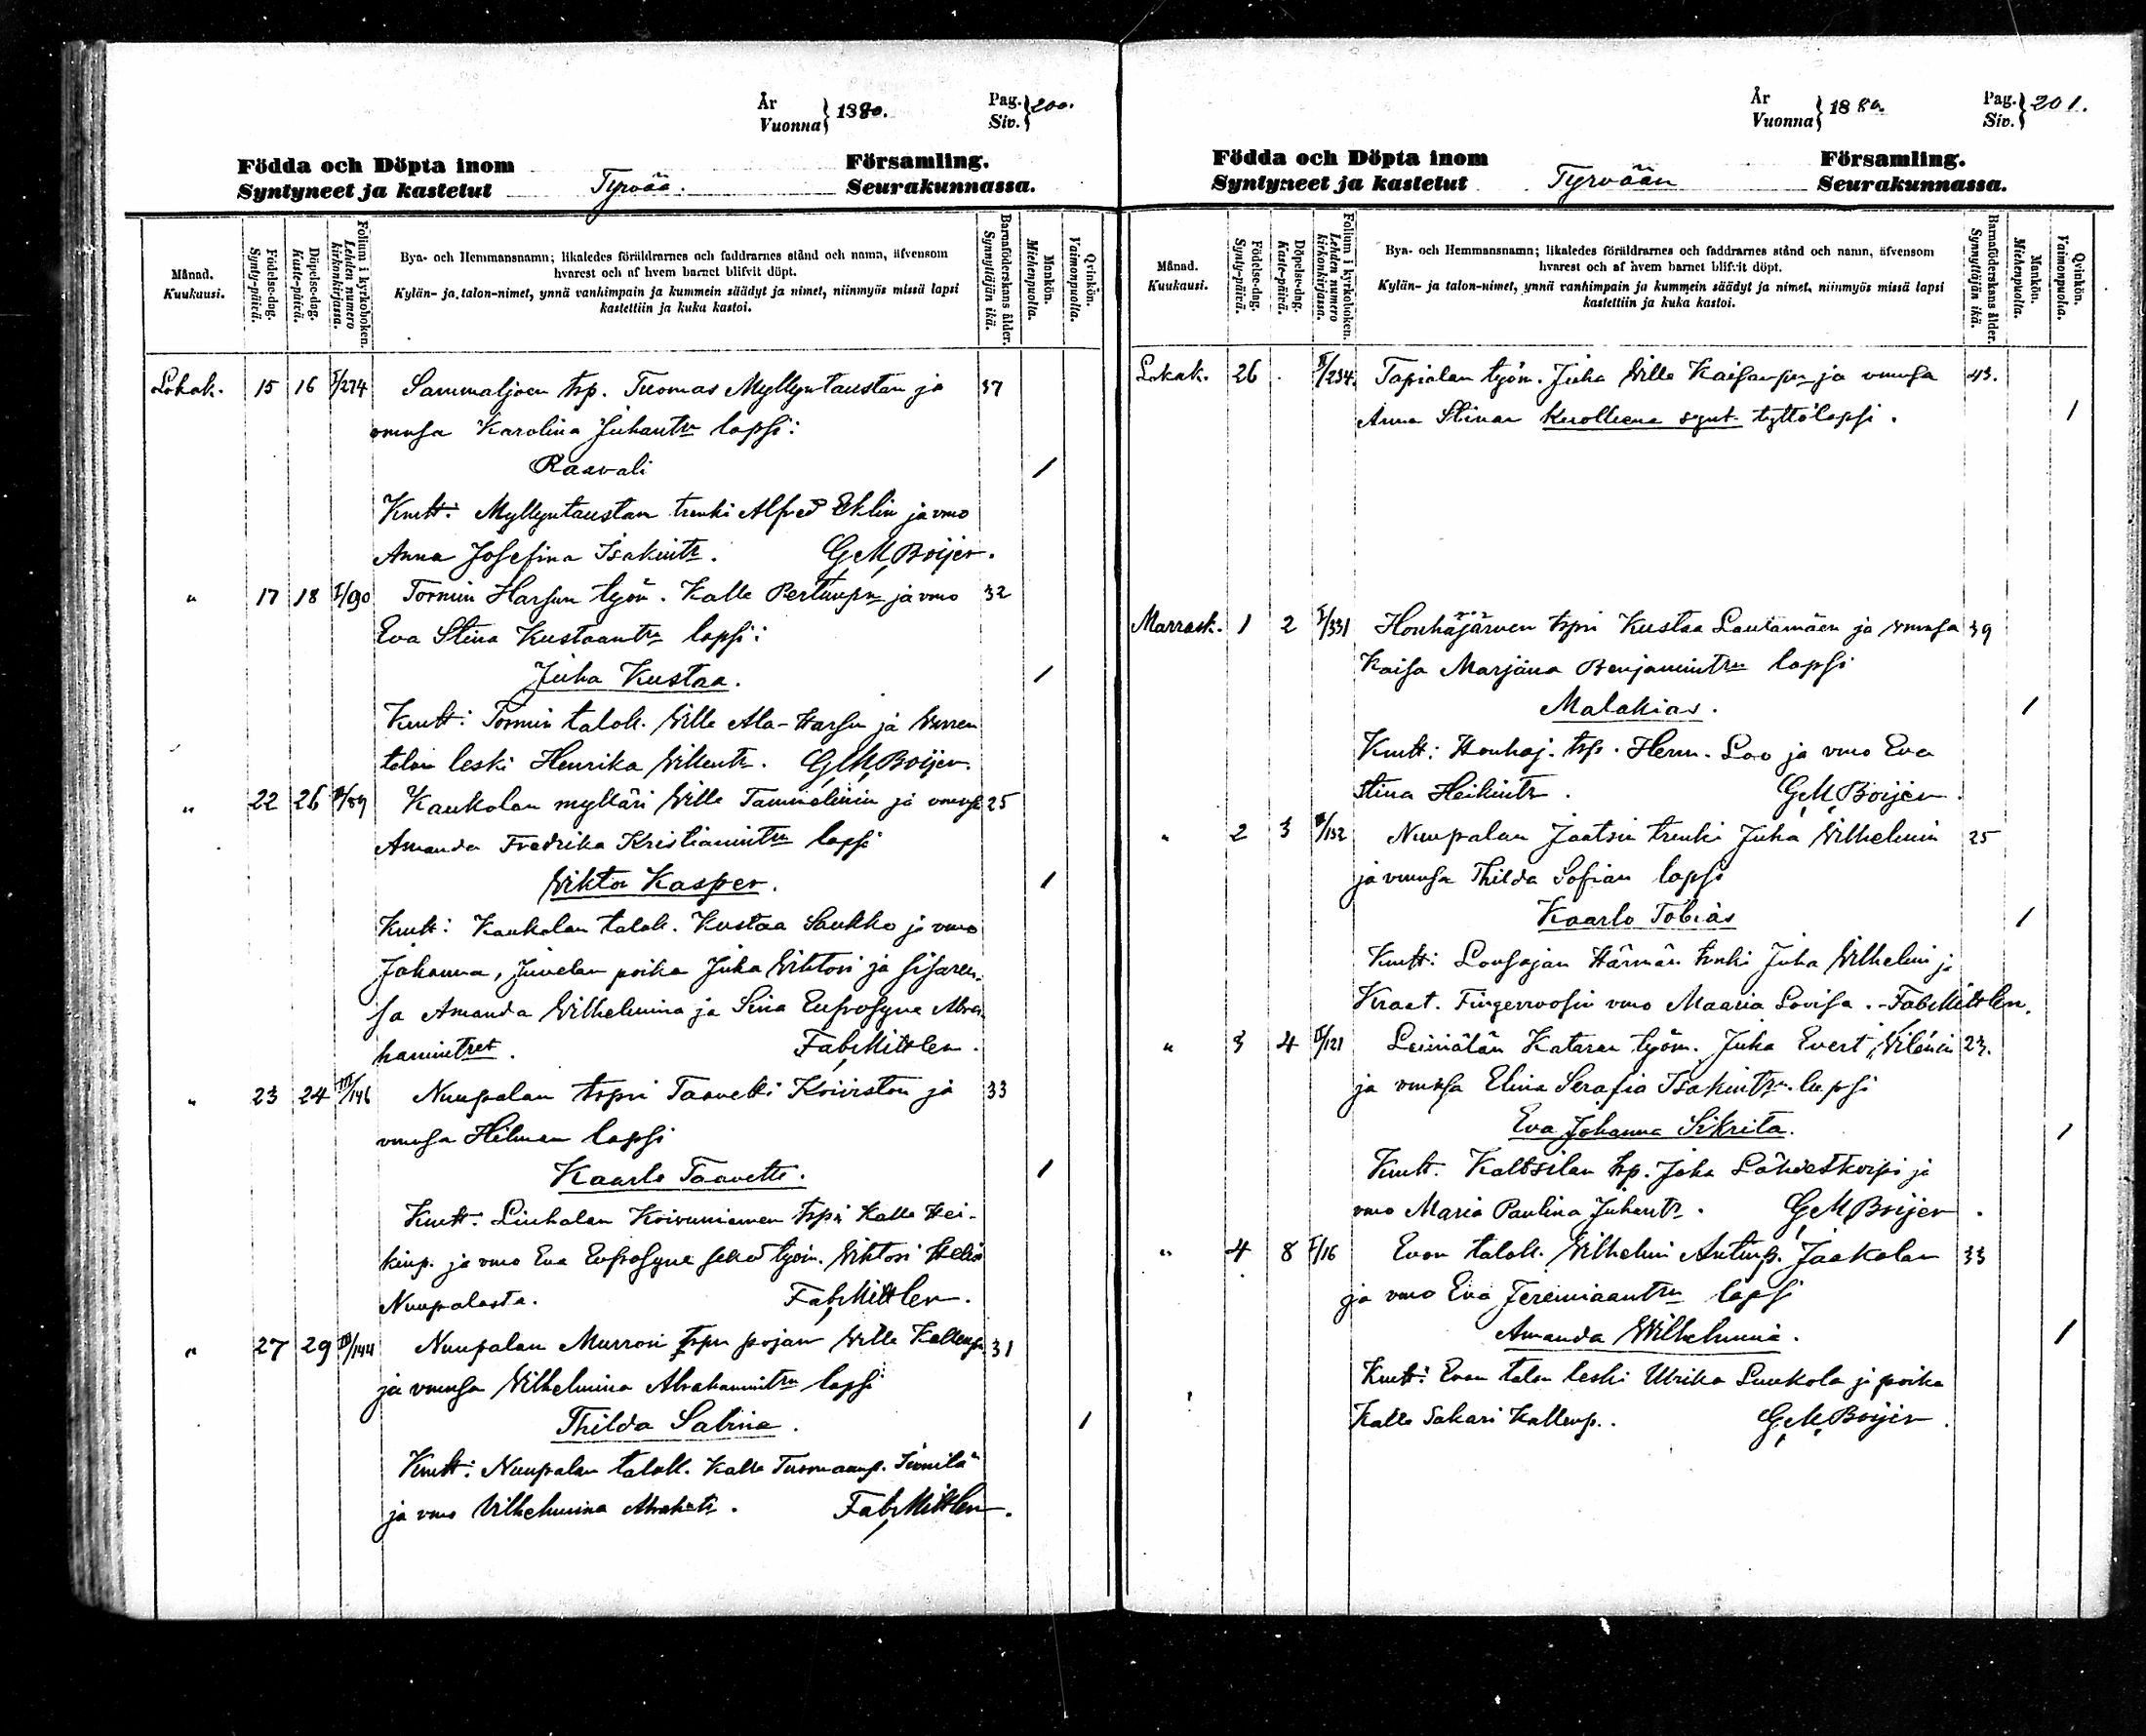 År
Vuonna } 1880.
Pag.
Siv. } 200.
Födda och Döpta inom Församling.
Syntyneet ja kastetut Tyrvää. Seurakunnassa.
Månad.
Kuukausi.
Födelse-dag.
Synty-päivä.
Döpelse-dag.
Kaste-päivä.
Folium i kyrkoboken.
Lehden numero
kirkonkirjassa.
Bya- och Hemmansnamn; likaledes föräldrarnes och faddrarnes stånd och namn, äfvensom
hvarest och af hvem barnet blifvit döpt.
Kylän- ja talon-nimet, ynnä vanhimpain ja kummein säädyt ja nimet, niinmyös missä lapsi
kastettiin ja kuka kastoi.
Barnaföderskans ålder.
Synnyttäjän ikä.
Mankön.
Miehenpuolia.
Qvinkön.
Vaimonpuolia.
Lokak. 15 16 I/274 Sammaljoen tsp. Tuomas Myllyntaustan ja 37
vmonsa Karolina Juhantr lapsi:
Raavali /
Kmtt: Myllyntaustan trenki Alfred Eklin ja vmo
Anna Josefina Isakintr. G.M. Boijer.
" 17 18 I/90 Tormin Harsun työm. Kalle Pertunpn ja vmo 32
Eva Stina Kustaantr lapsi:
Juha Kustaa. /
Kmtt: Tormin talok. Wille Ala-Harsu ja
talon leski Henrika Willentr. G.M. Boijer.
" 22 26 /89 Kaukolan mylläri Wille Tammelinin ja vmonsa 25
Amanda Fredrika Kristianintr lapsi
Wiktor Kasper. /
Kmtt: Kaukolan talok. Kustaa Saukko ja vmo
Johanna, Juvelan poika Juha Wihtori ja sisaren-
sa Amanda Wilhelmina ja Sina Eufrosyne Abra-
hamintret. Fab. Mittler.
" 23 24 III/146 Nuupalan tspri Taavetti Koiviston ja 33
vmonsa Hilman lapsi
Kaarle Taavetti. /
Kmtt: Liuhalan Koivuniemen tspi Kalle Hei-
kinp. ja vmo Eva Eufrosyne sekä työm. Wihtori
Nuupalasta. Fab. Mittler.
" 27 29 III/144 Nuupalan Murron tspn pojan Wille Kallenpn 31
ja vmonsa Wilhelmina Abrahamintrn lapsi
Thilda Sabina. /
Kmtt: Nuupalan talok. Kalle Tuomaanp. Simnilä
ja vmo Vilhelmina Abrahtr. Fab. Mittler.
År
Vuonna } 1880.
Pag.
Siv. } 201.
Födda och Döpta inom Församling.
Syntyneet ja kastetut Tyrvään Seurakunnassa.
Månad.
Kuukausi.
Födelse-dag.
Synty-päivä.
Döpelse-dag.
Kaste-päivä.
Folium i kyrkoboken.
Lehden numero
kirkonkirjassa.
Bya- och Hemmansnamn; likaledes föräldrarnes och faddrarnes stånd och namn, äfvensom
hvarest och af hvem barnet blifvit döpt.
Kylän- ja talon-nimet, ynnä vanhimpain ja kummein säädyt ja nimet, niinmyös missä lapsi
kastettiin ja kuka kastoi.
Barnaföderskans ålder.
Synnyttäjän ikä.
Mankön.
Miehenpuolia.
Qvinkön.
Vaimonpuolia.
Lokak. 26 . II/234 Tapiolan työm. Juha Wille Kaisanpn ja vmonsa 43.
Anna Stinan kuolleena synt. tyttölapsi. /
Marrask. 1 2 I/331 Houhajärven tspri Kustaa Lautamäen ja vmonsa 39
Kaisa Marjana Benjamintrn lapsi
Malakias. /
Kmtt: Houhaj. tsp. Herm. Loo ja vmo Eva
Stina Heikintr. G.M. Boijer.
" 2 3 /152 Nuupalan Jaatsin trenki Juha Wilhelmin 25
ja vmonsa Thilda Sofian lapsi
Kaarlo Tobias /
Kmtt: Lousajan Härmän trenki Juha Wilhelmi ja
Kraat. Fingerroosin vmo Maaria Lovisa. - Fab. Mittler.
" 3 4 II/121 Leiniälän Kataran työm. Juha Evert Vilénin 23.
ja vmonsa Elina Serafia Isakintrn lapsi
Eva Johanna Sikrita. /
Kmtt. Kaltsilan tsp. Juha Lähdetkorpi ja
vmo Maria Paulina Juhantr. G.M. Boijer.
" 4 8 I/16 Evon talok. Wilhelmi Antinp. Jaakolan 33
ja vmo Eva Jeremiaantrn lapsi
Amanda Wilhelmina. /
Kmtt: Evon talon leski Ulrika Luukola ja poika
Kalle Sakari Kallenp. G.M. Boijer.